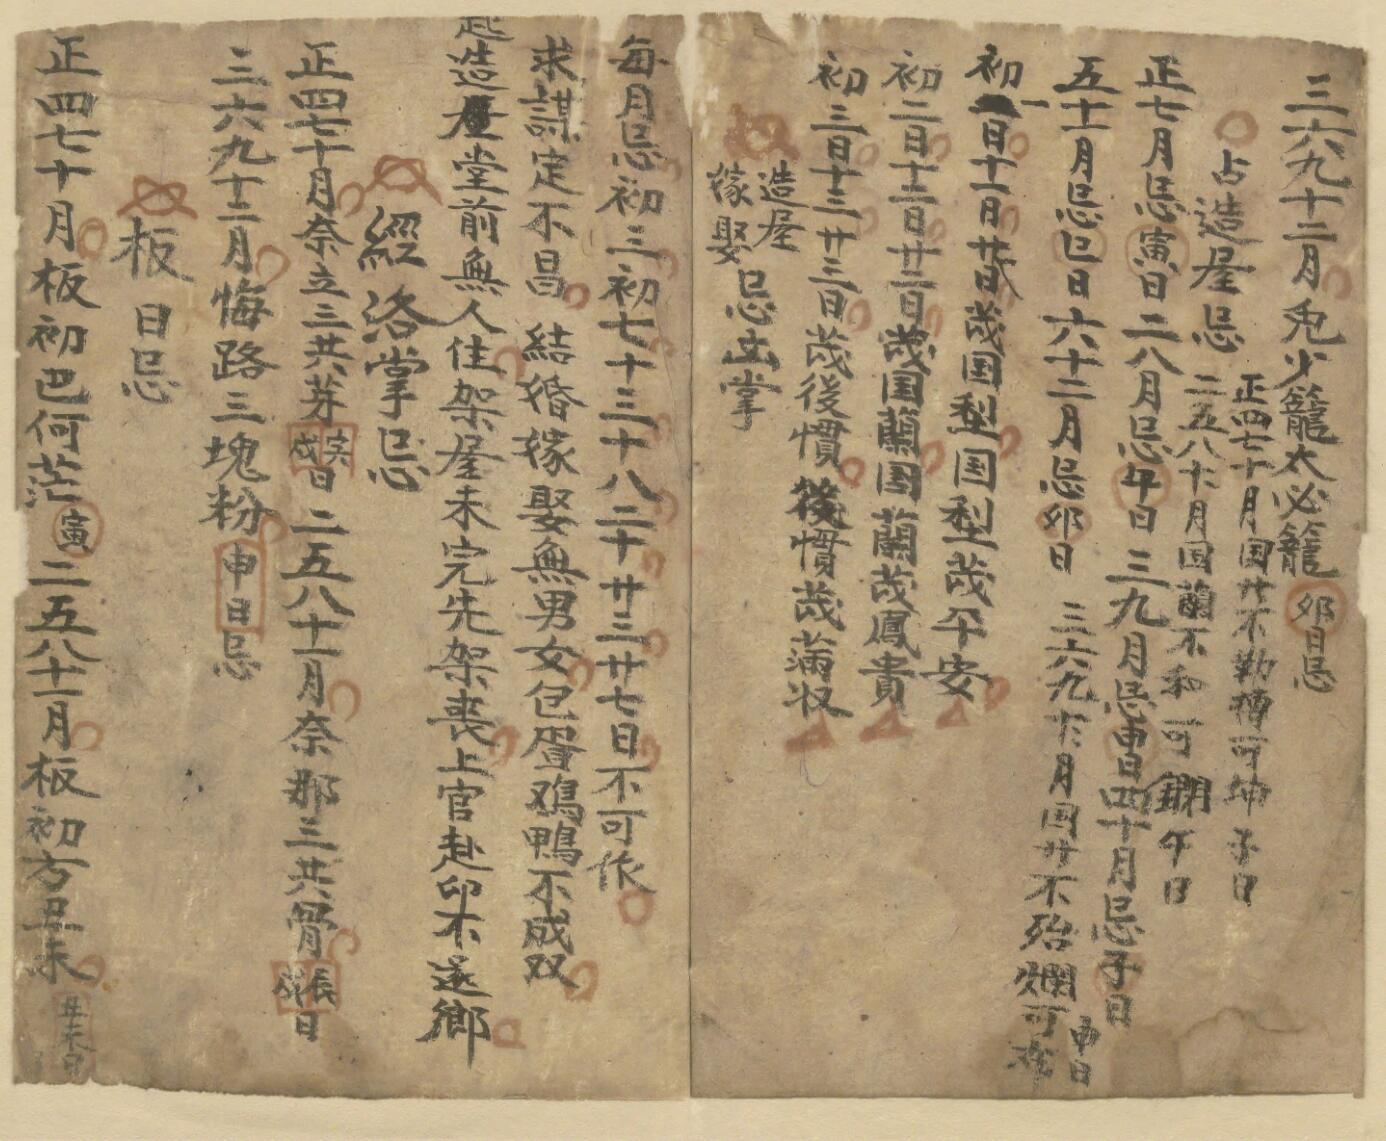 三六九十二月兎少籠太必籠卯日忌
占造屋忌
正四七十月国廿不勒槽可坤子日
二五八十一月国蘭不和可鐗午日
三六九十二月国廿不殆爛可 申日
正七月忌寅日二八月忌午日三九月忌申日四十月忌子日
五十一月忌巳日六十二月忌卯日
初一日十一日廿一日茂国型国型茂平安
初二日十二日廿二日茂国蘭国蘭茂鳳貴
初三日十三廿三日茂後慣後慣茂滿收
造屋
嫁娶
忌立掌
每月忌初三初七十三十八二十廿三廿七日不可作
求謀定不昌結婚嫁娶無男女包蛋鴉鴨不成双
起造屋堂前無人住架屋未完先架喪上官赴印不迯鄉
經洛掌忌
正四七十月奈立三共芽寅戌日二五八十一月奈那三共骨辰戌日
三六九十二月悔路三塊粉申日忌
板日忌
正四七十月板初巴何茫寅二五八十一月板初方丑未丑未日